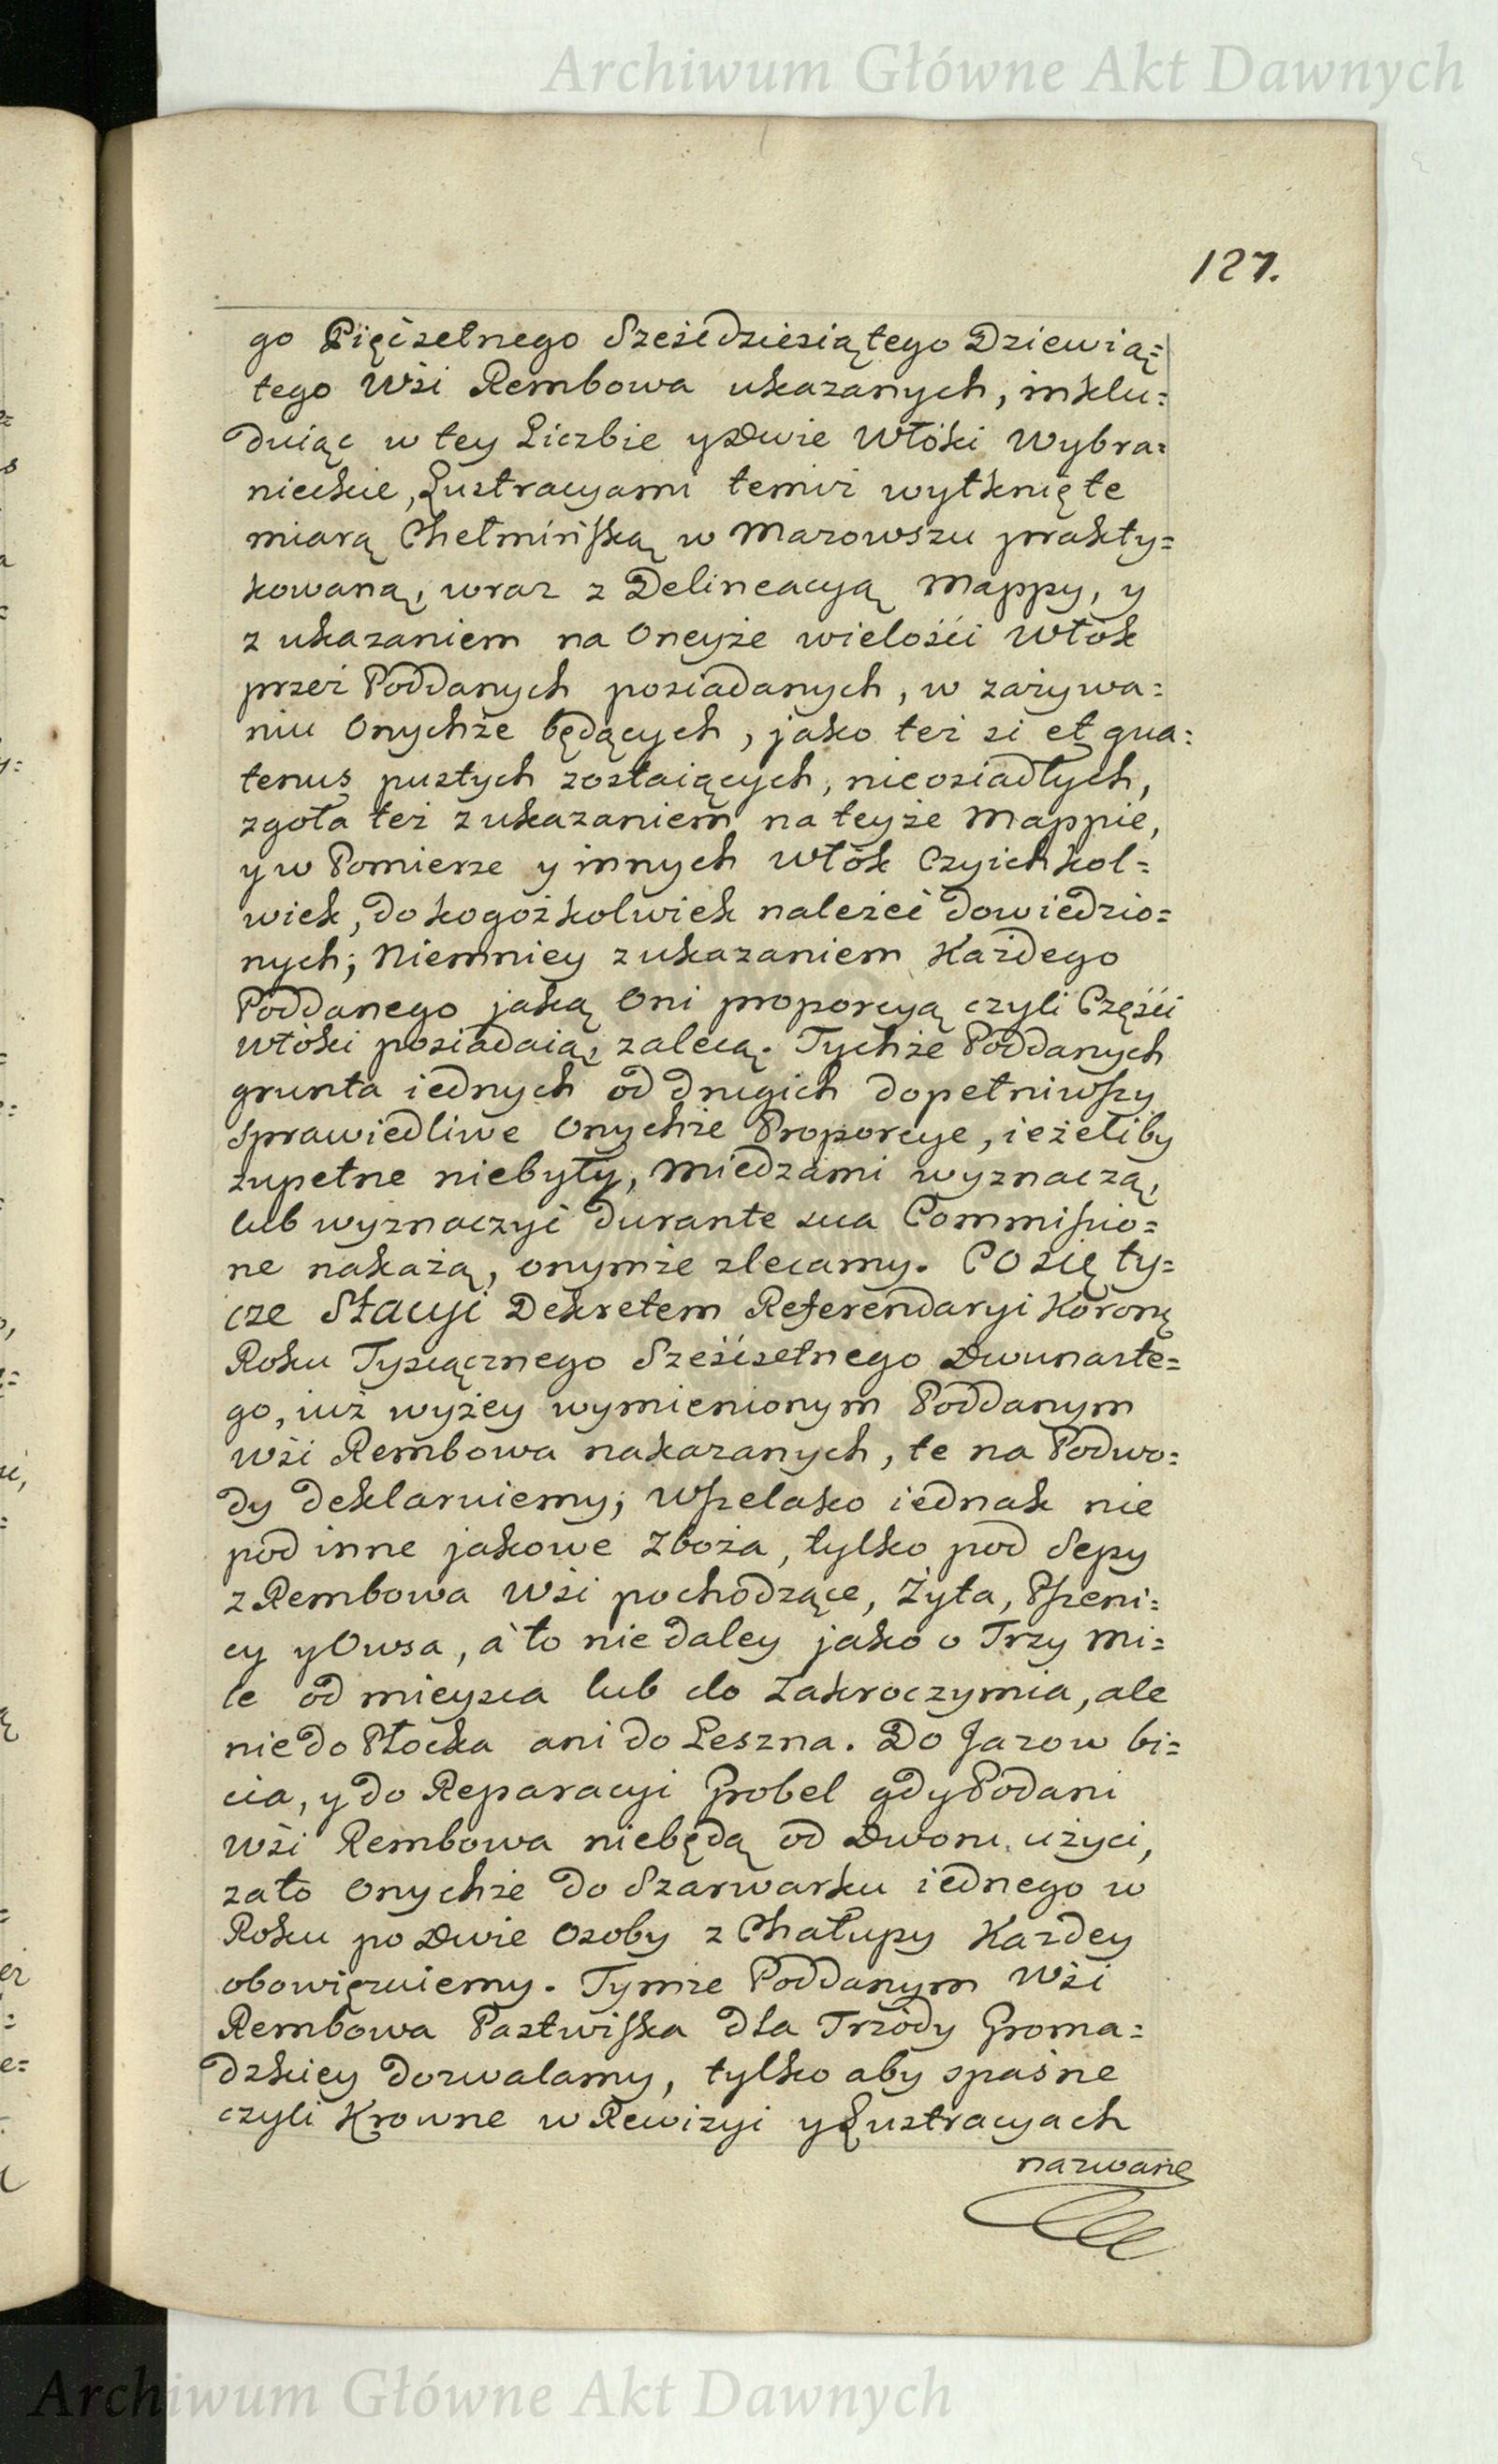 Archiwum Główne Akt Dawnych
127.
go Pięćsetnego Sześćdziesiątego Dziewią=
tego Wśi Rembowa ukazanych, inklu=
duiąc w tey Liczbie y Dwie Włóki Wybra=
nieckie, Lustracyami temiż wytknięte
miarą Chełmińską w Mazowszu prakty=
kowaną, wraz z Delineacyą Mappy, y
z ukazaniem na Oneyże wielośći Włók
przez Poddanych posiadanych, w zażywa=
niu Onychże będących, jako też si et qua=
tenus pustych zostaiących, nieosiadłych,
zgoła też z ukazaniem na teyże Mappie,
y w Pomierze y innych Włók Czyichkol=
wiek, do kogożkolwiek należeć dowiedzio=
nych; Niemniey z ukazaniem Każdego
Poddanego jaką Oni proporcyą czyli Częśći
Włóki posiadaią, zalecą. Tychże Poddanych
grunta iednych od drugich dopełniwszy
sprawiedliwe Onychże Proporcye, ieżeliby
zupełne niebyły, Miedzami wyznaczą,
lub wyznaczyć durante sua Commissio=
ne nakażą, onymże zlecamy. Co się ty=
cze Stacyi Dekretem Referendaryi Koronę
Roku Tysiącznego Sześćsetnego Dwunaste=
go, iuż wyżey wymienionym Poddanym
Wśi Rembowa nakazanych, te na Podwo=
dy deklaruiemy; Wszelako iednak nie
pod inne jakowe Zboża, tylko pod Sepy
z Rembowa Wśi pochodzące, Żyta, Pszeni=
cy y Owsa, a to nie daley jako o Trzy Mi=
le od mieysca lub do Zakroczymia, ale
nie do Płocka ani do Leszna. Do Jazow bi=
cia, y do Reparacyi Grobel gdy Podani
Wśi Rembowa niebędą od Dworu użyci,
zato Onychże do Szarwarku iednego w
Roku po Dwie Osoby z Chałupy Kazdey
obowięzuiemy. Tymże Poddanym Wśi
Rembowa Pastwiska dla Trzody Groma=
dzkiey dozwalamy, tylko aby spaśne
czyli Krowne w Rewizyi y Lustracyach
nazwane
Archiwum Główne Akt Dawnych